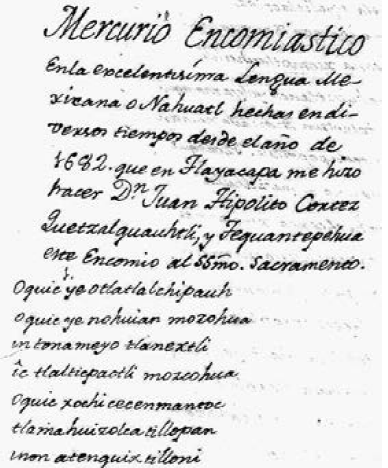 Mercurio Encomiastico
Enla excelentisíma Lengua Me-
xicana o Nahuatl hechas en di-
versos tiempos desde el año de
1682. que en Tlayacapa me hizo
hacer Dn. Juan Hipolito Cortez
Quetzalquauhtli, y Tequantepehua
este Encomio al SSmo. Sacramento.
Oquic ye otlatlalchipauh
oquic ye nohuian mozohua
in tonameyo tlanextli
ic tlalticpactli mozcohua
oquic xochicecenmantoc
tlamahuizolcatillopan
inon atenquixtilloni